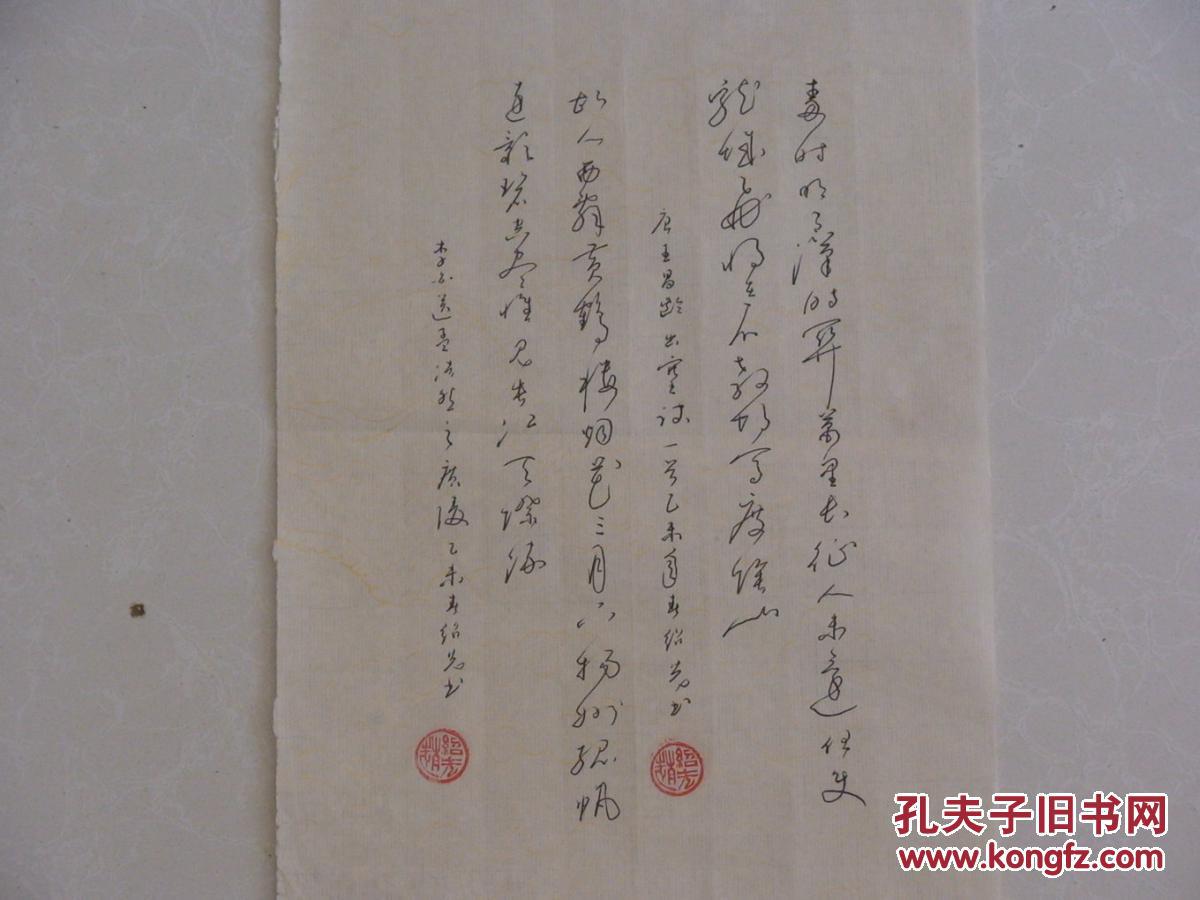 秦时明月汉时关萬里长征人未還但使
龙城飞将在不教胡马度陰山
唐王昌龄出塞诗一首乙未年春绍先书
故人西辞黄鹤楼烟花三月下扬州孤帆
远影碧空尽惟见长江天际流
李白送孟浩然之廣陵乙未春绍先书
孔夫子旧书网
www.kongfz.com